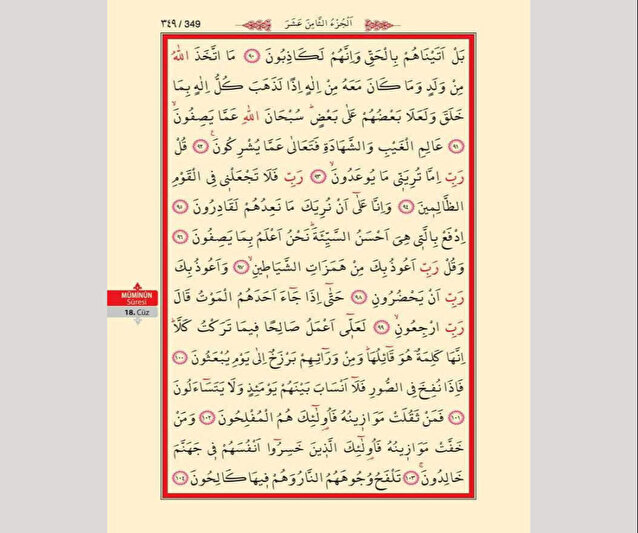 ٣٤٩ / 349
اَلْجُزْءُ الثَّامِنَ عَشَرَ
بَلْ اَتَيْنَاهُمْ بِالْحَقِّ وَاِنَّهُمْ لَكَاذِبُونَ ﴿٩٠﴾ مَا اتَّخَذَ اللّٰهُ
مِنْ وَلَدٍ وَمَا كَانَ مَعَهُ مِنْ اِلٰهٍ اِذًا لَذَهَبَ كُلُّ اِلٰهٍ بِمَا
خَلَقَ وَلَعَلَا بَعْضُهُمْ عَلٰى بَعْضٍ سُبْحَانَ اللّٰهِ عَمَّا يَصِفُونَۙ
﴿٩١﴾ عَالِمِ الْغَيْبِ وَالشَّهَادَةِ فَتَعَالٰى عَمَّا يُشْرِكُونَ۟ ﴿٩٢﴾ قُلْ
رَبِّ اِمَّا تُرِيَنّٖى مَا يُوعَدُونَۙ ﴿٩٣﴾ رَبِّ فَلَا تَجْعَلْنٖى فِى الْقَوْمِ
الظَّالِمٖينَ ﴿٩٤﴾ وَاِنَّا عَلٰٓى اَنْ نُرِيَكَ مَا نَعِدُهُمْ لَقَادِرُونَ ﴿٩٥﴾
اِدْفَعْ بِالَّتٖى هِىَ اَحْسَنُ السَّيِّئَةَ نَحْنُ اَعْلَمُ بِمَا يَصِفُونَ ﴿٩٦﴾
وَقُلْ رَبِّ اَعُوذُ بِكَ مِنْ هَمَزَاتِ الشَّيَاطٖينِۙ ﴿٩٧﴾ وَاَعُوذُ بِكَ
رَبِّ اَنْ يَحْضُرُونِ ﴿٩٨﴾ حَتّٰٓى اِذَا جَٓاءَ اَحَدَهُمُ الْمَوْتُ قَالَ
رَبِّ ارْجِعُونِۙ ﴿٩٩﴾ لَعَلّٖٓى اَعْمَلُ صَالِحًا فٖيمَا تَرَكْتُ كَلَّاۜ
اِنَّهَا كَلِمَةٌ هُوَ قَٓائِلُهَاۜ وَمِنْ وَرَٓائِهِمْ بَرْزَخٌ اِلٰى يَوْمِ يُبْعَثُونَ ﴿١٠٠﴾
فَاِذَا نُفِخَ فِى الصُّورِ فَلَٓا اَنْسَابَ بَيْنَهُمْ يَوْمَئِذٍ وَلَا يَتَسَٓاءَلُونَ
﴿١٠١﴾ فَمَنْ ثَقُلَتْ مَوَازٖينُهُ فَاُولٰٓئِكَ هُمُ الْمُفْلِحُونَ ﴿١٠٢﴾ وَمَنْ
خَفَّتْ مَوَازٖينُهُ فَاُولٰٓئِكَ الَّذٖينَ خَسِرُٓوا اَنْفُسَهُمْ فٖى جَهَنَّمَ
خَالِدُونَۚ ﴿١٠٣﴾ تَلْفَحُ وُجُوهَهُمُ النَّارُ وَهُمْ فٖيهَا كَالِحُونَ ﴿١٠٤﴾
MÜMİNÛN
Sûresi
18. Cüz